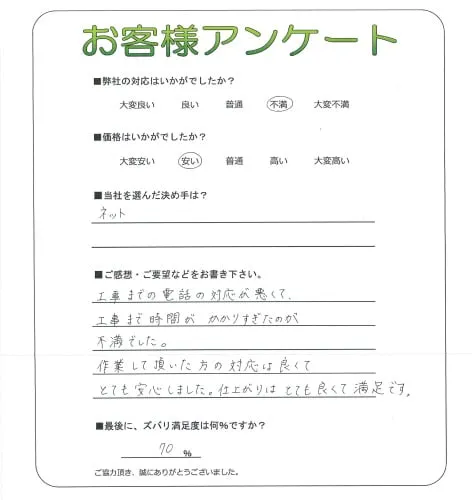 お客様アンケート
■弊社の対応はいかがでしたか？
大変良い 良い 普通 不満 大変不満
■価格はいかがでしたか？
大変安い 安い 普通 高い 大変高い
■当社を選んだ決め手は？
ネット
■ご感想・ご要望などをお書き下さい。
工事までの電話の対応が悪くて、
工事まで時間が かかりすぎたのが
不満でした。
作業して頂いた方の対応は良くて
とても安心しました。仕上がりはとても良くて満足です。
■最後に、ズバリ満足度は何%ですか？
70 %
ご協力頂き、誠にありがとうございました。